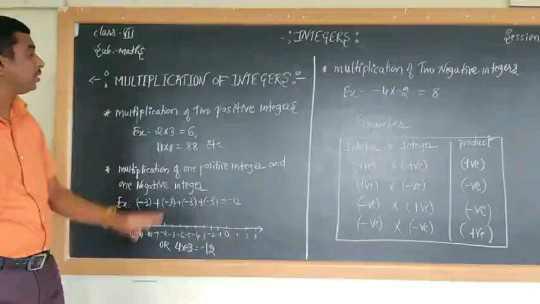 class- VII
Sub.-maths
-: INTEGERS:
Session
MULTIPLICATION OF INTEGERS:-
* multiplication of Two positive Integers
Ex:- 2x3 = 6,
= 88 etc
* multiplication of one positive Integer and
one Negative integer
Ex. (-3)+(-3)+(-3)+(-3)=-12
OR 4x-3=-12
* multiplication of Two Negative integers
Ex:- -4x-2 = 8
Integer x Integer product
(+ve) x (+ve) (+ve)
(+ve) x (-ve) (-ve)
(-ve) x (+ve) (-ve)
(-ve) x (-ve) (+ve)